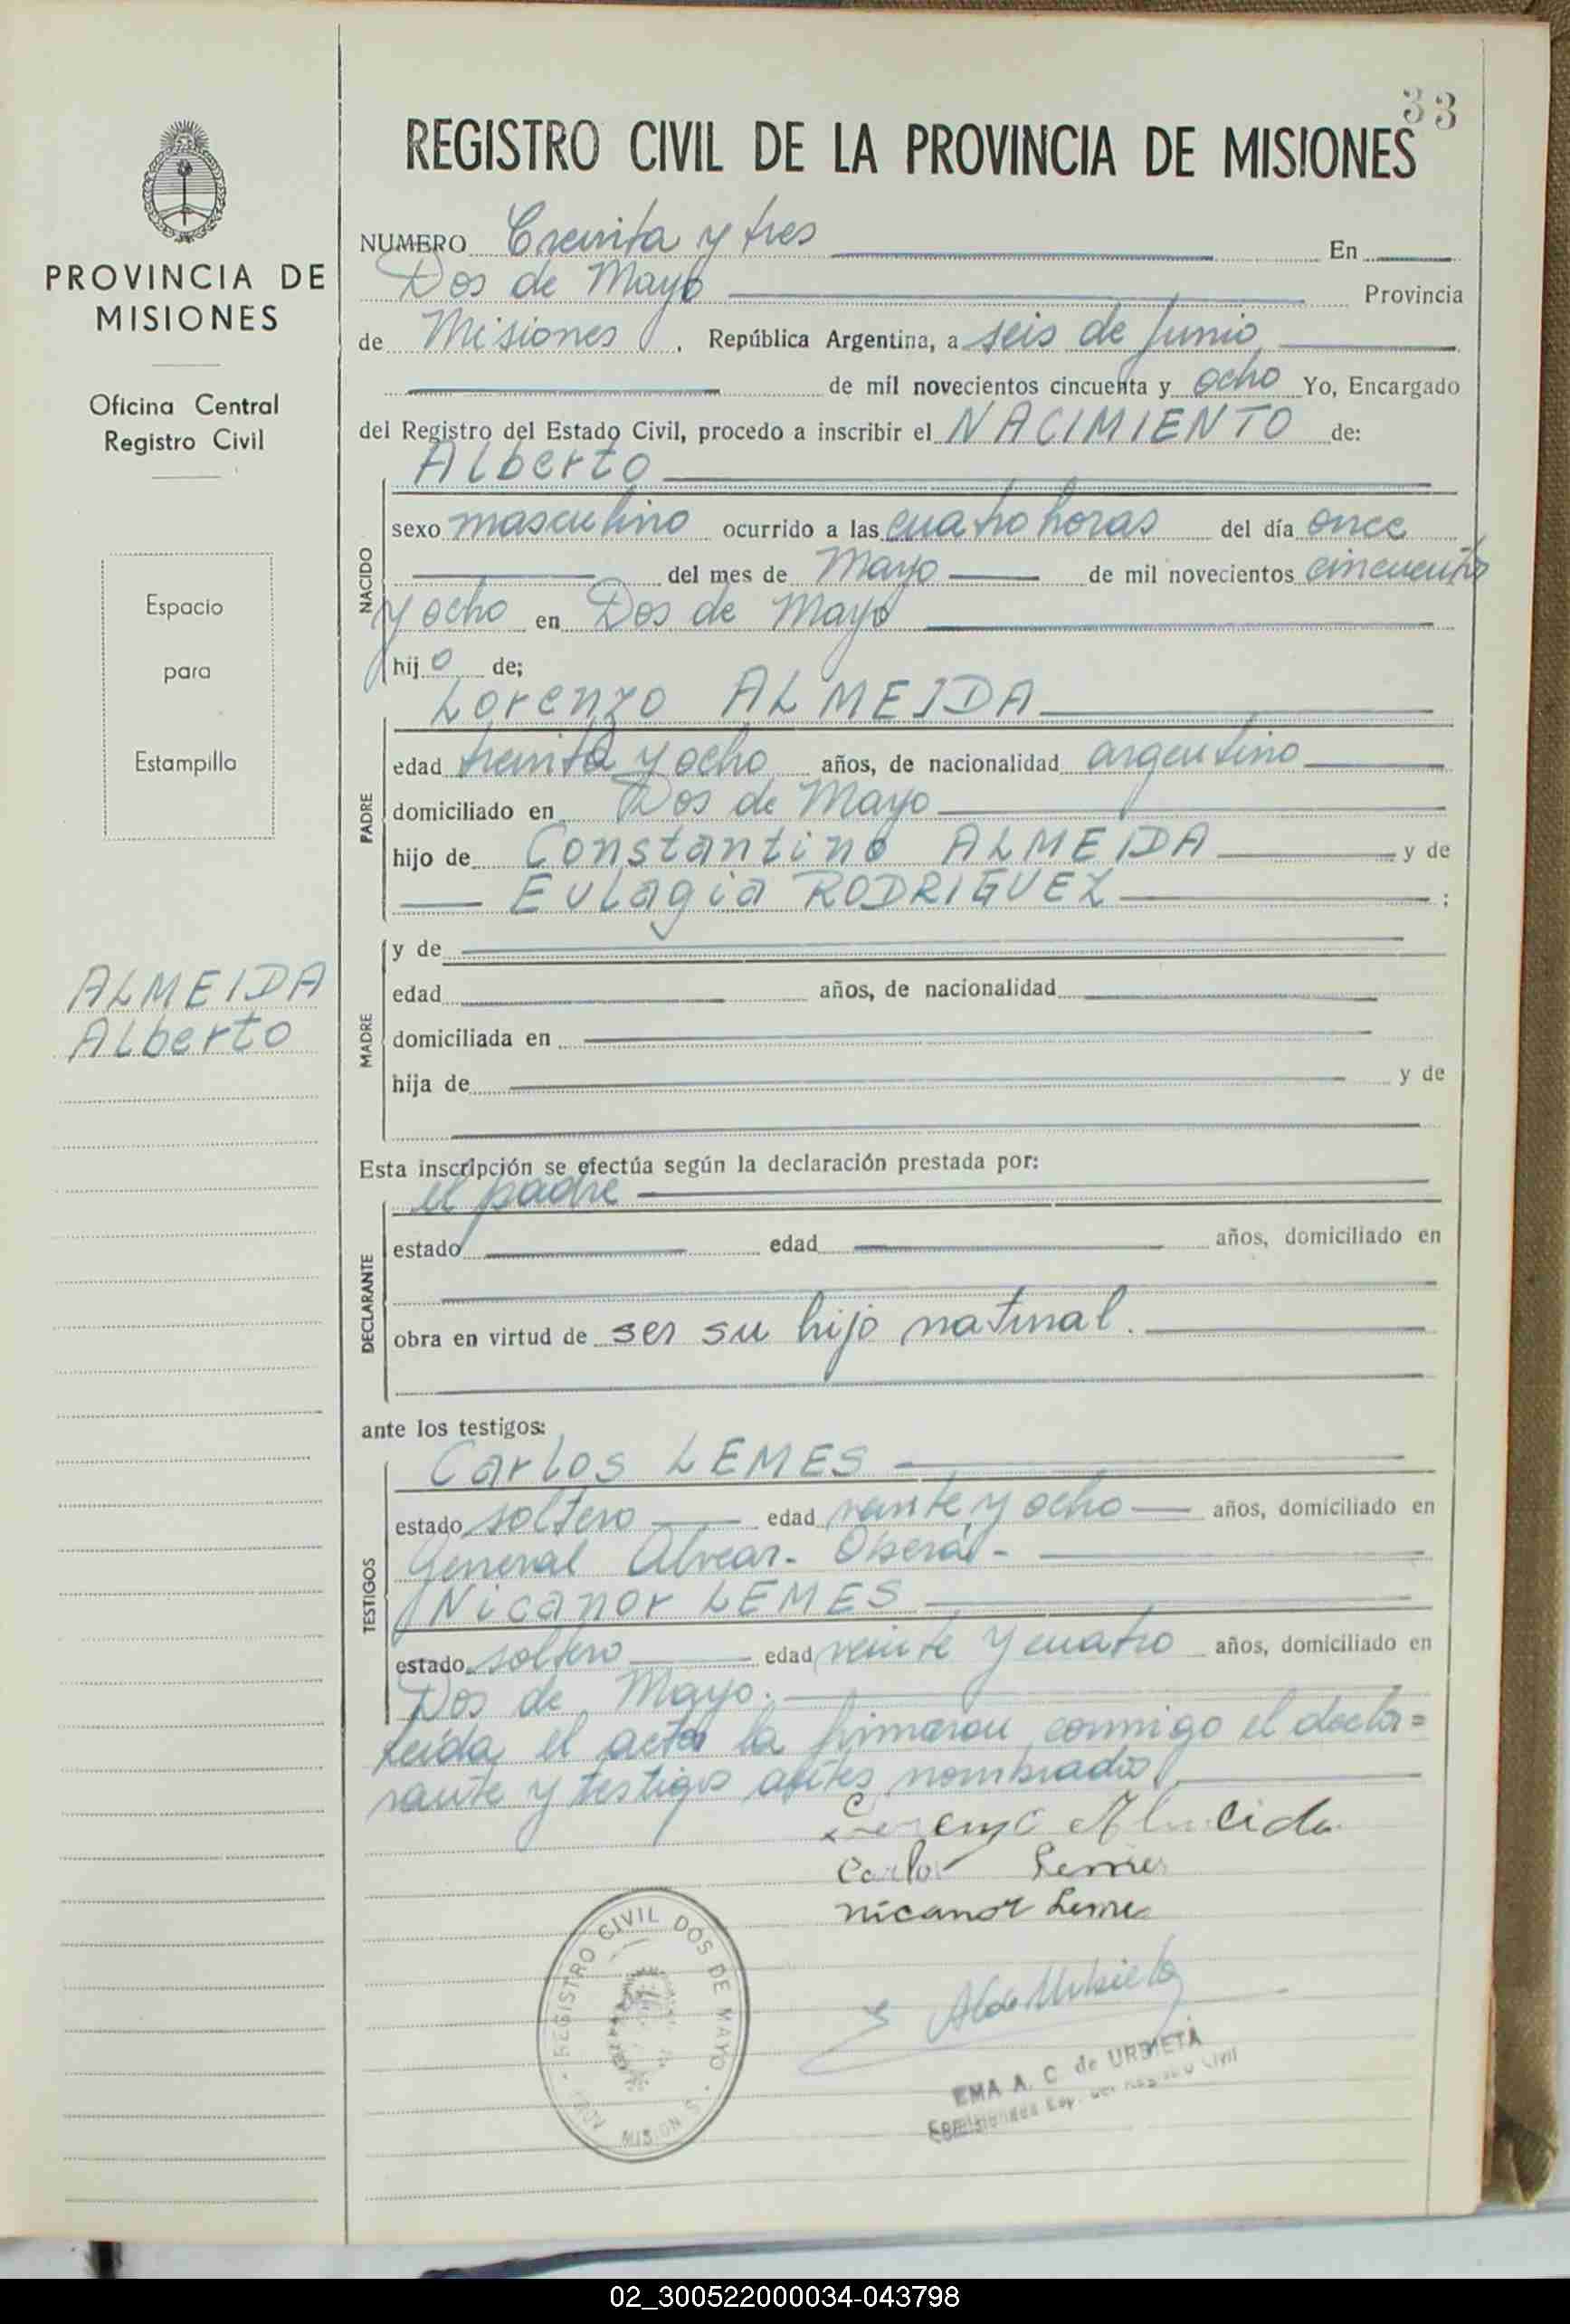 33
REGISTRO CIVIL DE LA PROVINCIA DE MISIONES
PROVINCIA DE
MISIONES
Oficina Central
Registro Civil
Espacio
para
Estampilla
ALMEIDA
Alberto
NUMERO Treinta y tres En
Dos de Mayo Provincia
de Misiones, República Argentina, a seis de Junio
de mil novecientos cincuenta y ocho Yo, Encargado
del Registro del Estado Civil, procedo a inscribir el NACIMIENTO de:
Alberto
NACIDO
sexo masculino ocurrido a las cuatro horas del día once
del mes de Mayo de mil novecientos cincuenta
y ocho en Dos de Mayo
hijo de;
Lorenzo ALMEIDA
PADRE
edad treinta y ocho años, de nacionalidad argentino
domiciliado en Dos de Mayo
hijo de Constantino ALMEIDA y de
Eulagia RODRIGUEZ ;
MADRE
y de
edad años, de nacionalidad
domiciliada en
hija de y de
Esta inscripción se efectúa según la declaración prestada por:
el padre
DECLARANTE
estado edad años, domiciliado en
obra en virtud de ser su hijo natural.
ante los testigos:
Carlos LEMES
TESTIGOS
estado soltero edad veinte y ocho años, domiciliado en
General Alvear - Oberá -
Nicanor LEMES
estado soltero edad veinte y cuatro años, domiciliado en
Dos de Mayo.
Leida el acta la firmaron conmigo el decla=
rante y testigos antes nombrados
Lorenzo Almeida
Carlos Lemes
nicanor Leme
REGISTRO CIVIL DOS DE MAYO
PROV. MISIONES
EMA A. C. de URBIETA
Registro Civil
02_300522000034-043798